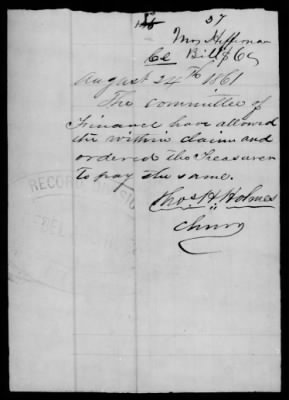 37
Mrs Heffernan
Bill
August 24th 1861
The committee of
Finance have allowed
the within claim and
ordered the Treasurer
to pay the same.
Thos. H. Holmes
RECORD DIVISION
REBEL